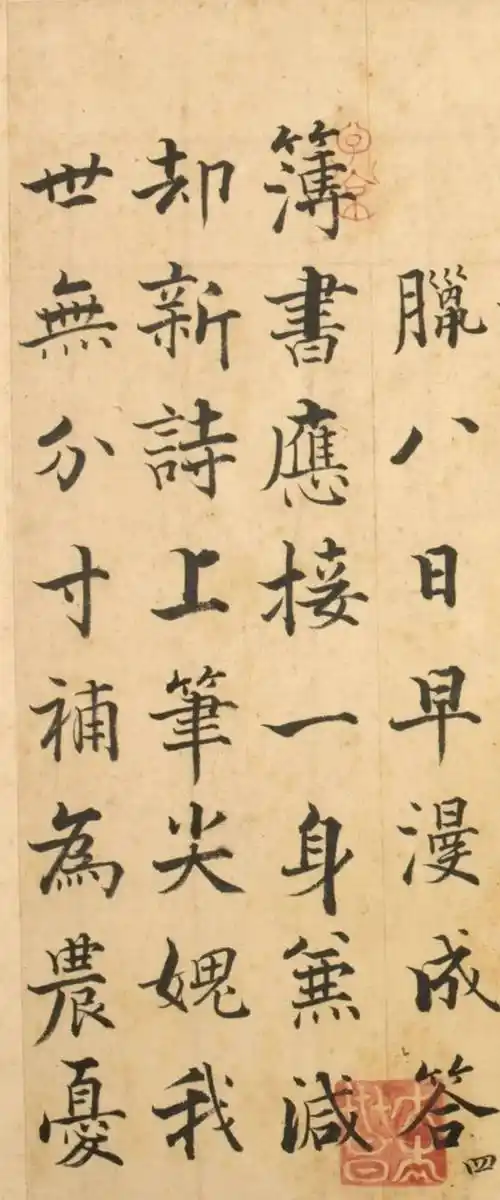 臘八日早漫成答四
簿書應接一身兼減
却新詩上筆尖媿我
世無分寸補為農憂